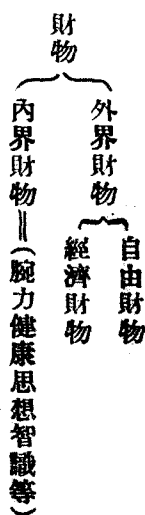 財物
外界財物
自由財物
經濟財物
內界財物＝（腕力健康思想智識等）